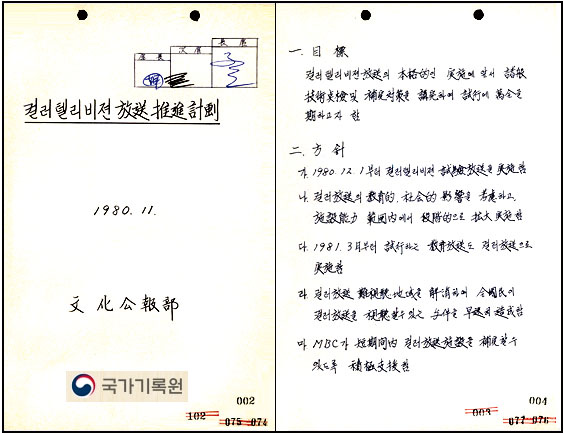 局長
次長
長官
컬러텔리비젼 放送 推進計劃
1980. 11.
文化公報部
국가기록원
002
102
075 074
一. 目標
컬러텔리비젼放送의 本格的인 実施에 앞서 諸般
技術点検 및 補完対策을 講究하여 試行에 萬全을
期하고자 함
二. 方針
가. 1980. 12. 1부터 컬러텔리비젼 試験放送을 実施함
나. 컬러放送의 教育的, 社会的 影響을 考慮하고,
施設能力 範囲内에서 段階的으로 拡大 実施함
다. 1981. 3月부터 試行하는 教育放送도 컬러放送으로
実施함
라. 컬러放送 難視聴地域을 解消하여 全国民이
컬러放送을 視聴할 수 있는 与件을 早速히 造成함
마. MBC가 短期間内 컬러放送施設을 補完할 수
있도록 積極支援함
004
003
077 076